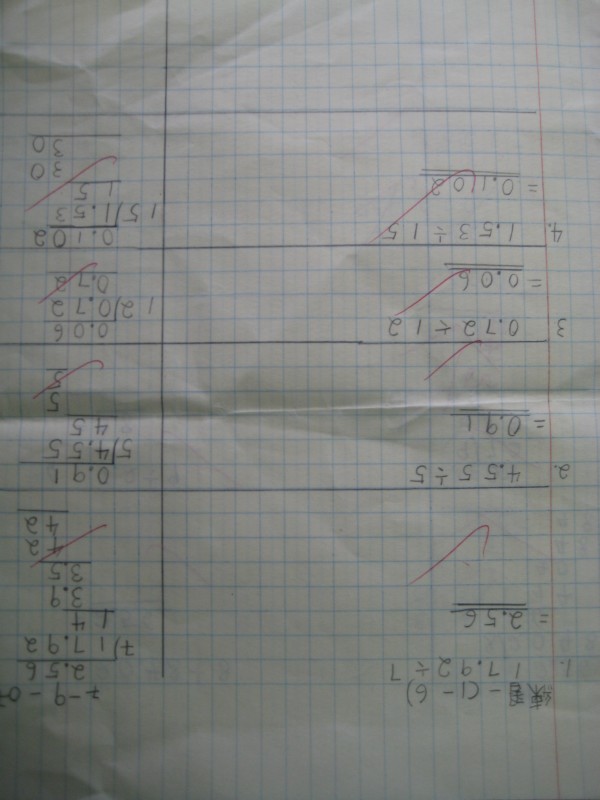 練習一 (1-6)
7-9-07
1. 17.92÷7
= 2.56
2.56
7)17.92
14
3.9
3.5
42
42
2. 4.55÷5
= 0.91
0.91
5)4.55
45
5
5
3 0.72÷12
= 0.06
0.06
12)0.72
0.72
4. 1.53÷15
= 0.102
0.102
15)1.53
15
30
30